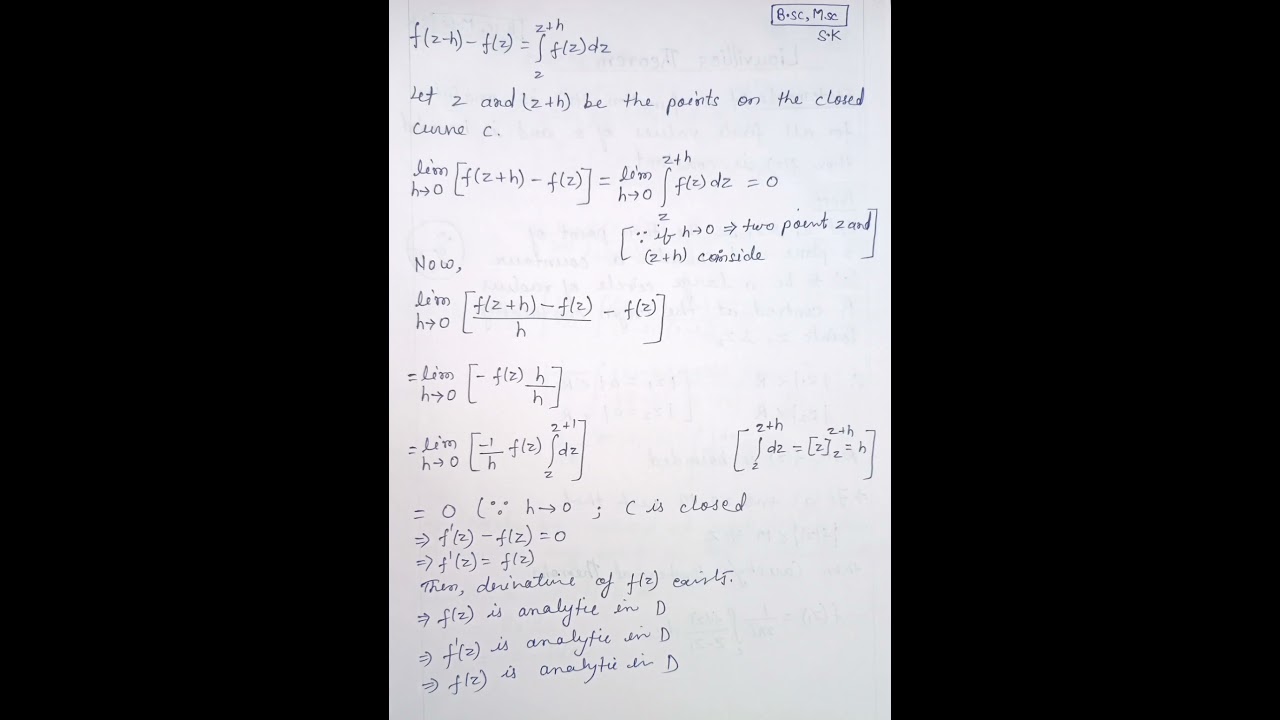 B.sc, M.sc
S.K
f(z-h) - f(z) = ∫_z^{z+h} f(z) dz
Let z and (z+h) be the points on the closed
curve c.
lim_{h→0} [f(z+h) - f(z)] = lim_{h→0} ∫_z^{z+h} f(z) dz = 0
[∵ if h→0 ⇒ two point z and
(z+h) coinside]
Now,
lim_{h→0} [(f(z+h) - f(z))/h - f(z)]
= lim_{h→0} [- f(z) h/h]
= lim_{h→0} [-1/h f(z) ∫_z^{z+1} dz] [∫_z^{z+h} dz = [z]_z^{z+h} = h]
= 0 (∵ h→0 ; C is closed
⇒ f'(z) - f(z) = 0
⇒ f'(z) = f(z)
Then, derivative of f(z) exists.
⇒ f(z) is analytic in D
⇒ f'(z) is analytic in D
⇒ f(z) is analytic in D